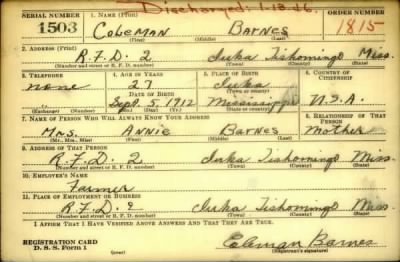 Discharged: 1-18-46
SERIAL NUMBER 1. NAME (Print) ORDER NUMBER
1503 COLEMAN BARNES 1815
(First) (Middle) (Last)
2. ADDRESS (Print)
R.F.D. 2 Iuka Tishomingo Miss.
(Number and street or R. F. D. number) (Town) (County) (State)
3. TELEPHONE 4. AGE IN YEARS 5. PLACE OF BIRTH 6. COUNTRY OF CITIZENSHIP
none 27 Iuka
DATE OF BIRTH (Town or county)
Sept. 5, 1912 Mississippi U.S.A.
(Exchange) (Number) (Mo.) (Day) (Yr.) (State or country)
7. NAME OF PERSON WHO WILL ALWAYS KNOW YOUR ADDRESS 8. RELATIONSHIP OF THAT PERSON
Mrs. Annie Barnes Mother
(Mr., Mrs., Miss) (First) (Middle) (Last)
9. ADDRESS OF THAT PERSON
R.F.D. 2 Iuka Tishomingo Miss.
(Number and street or R. F. D. number) (Town) (County) (State)
10. EMPLOYER'S NAME
Farmer
11. PLACE OF EMPLOYMENT OR BUSINESS
R.F.D. 2 Iuka Tishomingo Miss.
(Number and street or R. F. D. number) (Town) (County) (State)
I AFFIRM THAT I HAVE VERIFIED ABOVE ANSWERS AND THAT THEY ARE TRUE.
REGISTRATION CARD
D. S. S. Form 1 Coleman Barnes
(Registrant's signature)